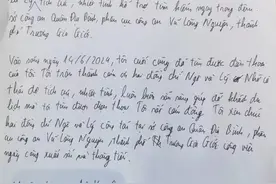 tích cực, nhiệt tình hỗ trợ tìm kiếm ngay trong đêm
sở công an Quân Địa Đình, phân cục công an Võ Lăng Nguyên, thành
phố Trương Gia Giới.
Vào sáng ngày 14/6/2024, tôi cuối cùng đã tìm được điện thoại
của tôi. Tôi trân thành cảm ơn hai đồng chí Ngô và Lý Nhờ có
thái độ tích cực, nhiệt tình, luôn luôn sẵn sàng giúp đỡ khách du
lịch mà tôi tìm được điện thoại. Tôi rất cảm động. Tôi xin chúc
hai đồng chí Ngô và Lý công tác tại sở công an Quân Địa Đình, phân
cục công an Võ Lăng Nguyên, thành phố Trương Gia Giới công việc
ngày càng xuất sắc và thăng tiến.